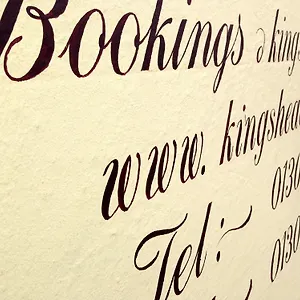 Bookings @ kings
www. kingshea
Tel:~ 0130
0130